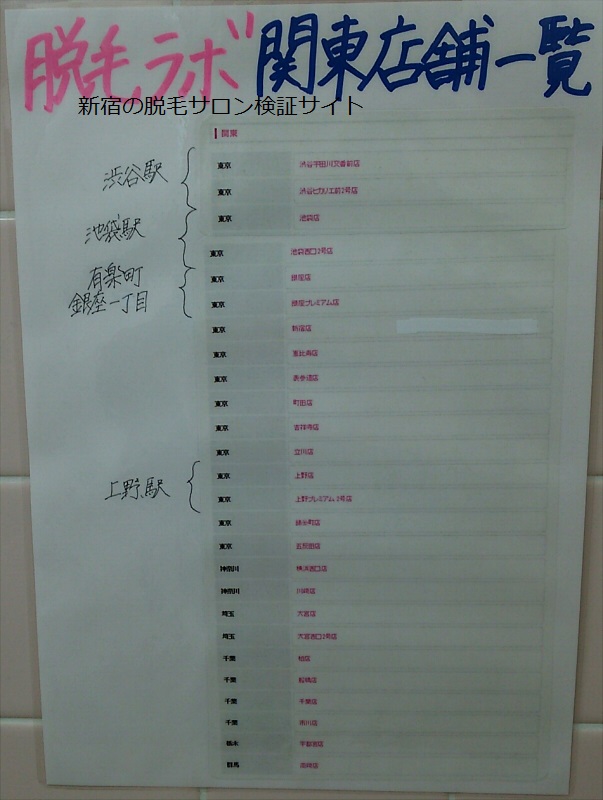 脱毛ラボ 関東店舗一覧
新宿の脱毛サロン検証サイト
関東
渋谷駅
東京 渋谷宇田川交番前店
東京 渋谷ヒカリエ前2号店
池袋駅
東京 池袋店
東京 池袋西口2号店
有楽町
銀座一丁目
東京 銀座店
東京 銀座プレミアム店
東京 新宿店
東京 恵比寿店
東京 表参道店
東京 町田店
東京 吉祥寺店
東京 立川店
上野駅
東京 上野店
東京 上野プレミアム2号店
東京 錦糸町店
東京 五反田店
神奈川 横浜西口店
神奈川 川崎店
埼玉 大宮店
埼玉 大宮西口2号店
千葉 柏店
千葉 船橋店
千葉 千葉店
千葉 市川店
栃木 宇都宮店
群馬 高崎店